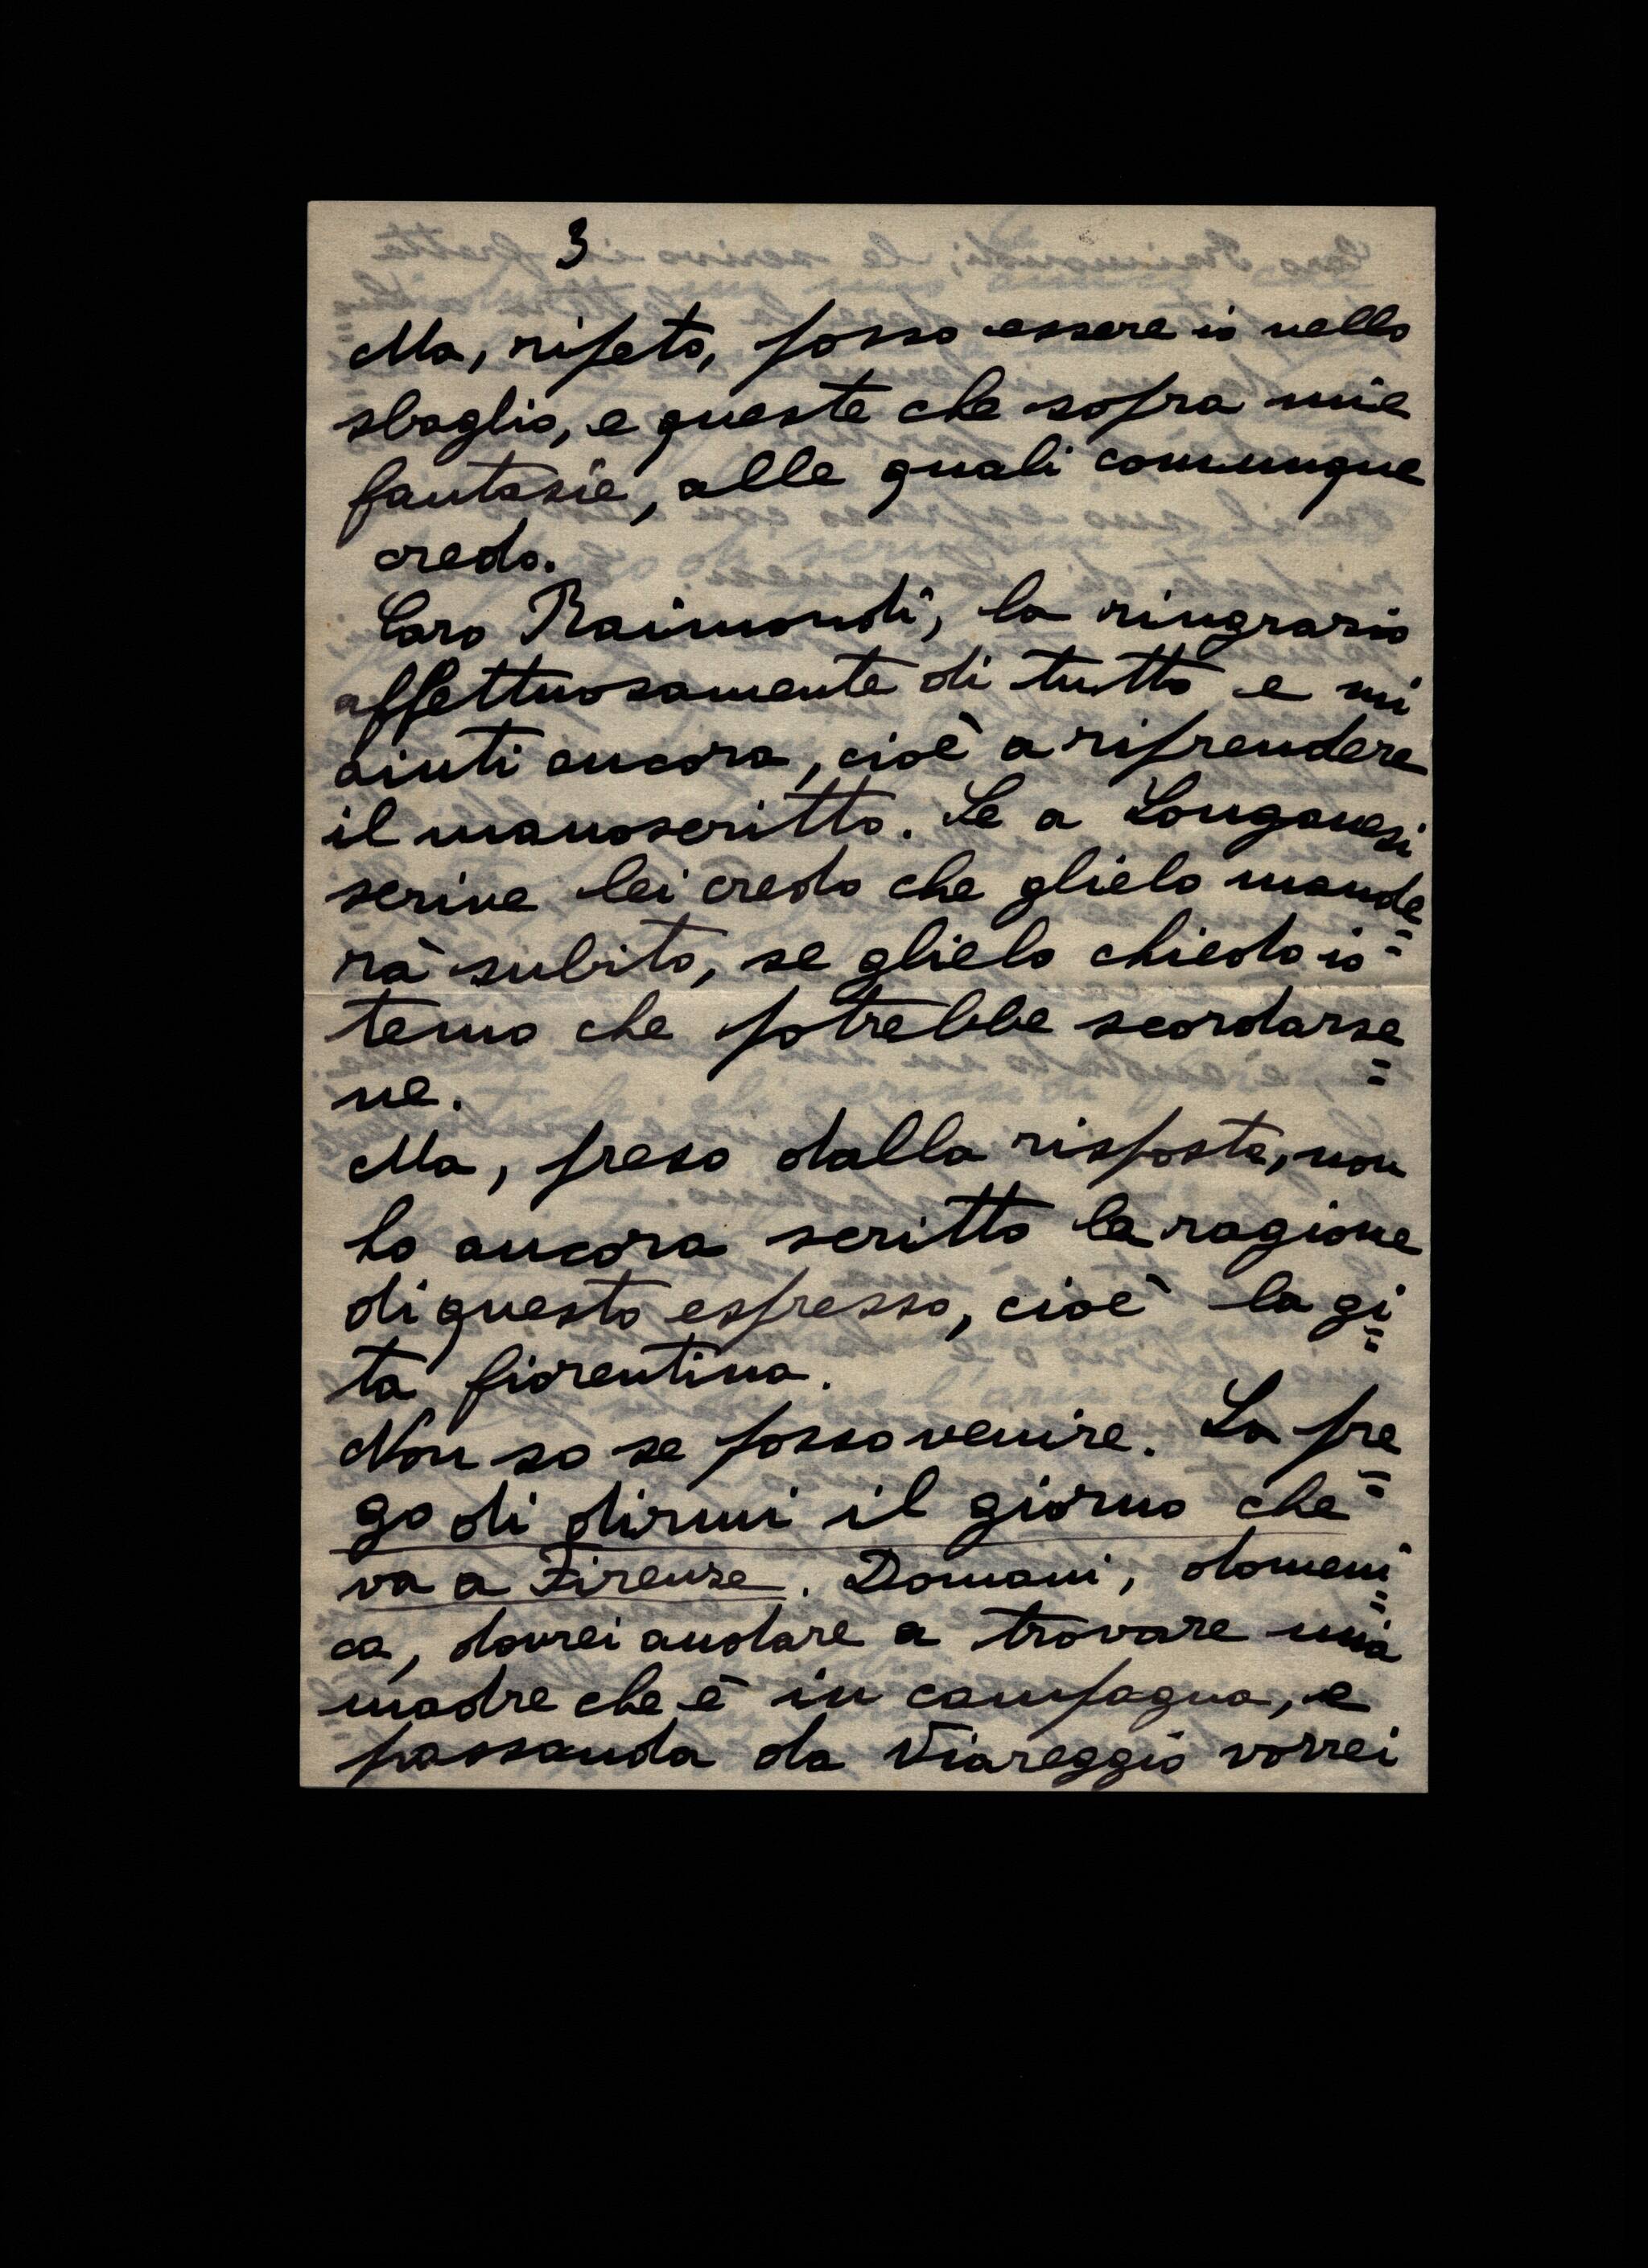 3
Ma, ripeto, posso essere io nello
sbaglio, e queste che sopra mie
fantasie, alle quali comunque
credo.
Caro Raimondi, la ringrazio
affettuosamente di tutto e mi
aiuti ancora, cioè a riprendere
il manoscritto. Se a Longanesi
scrive lei credo che glielo mande=
rà subito, se glielo chiedo io
temo che potrebbe scordarse=
ne.
Ma, preso dalla risposta, non
ho ancora scritto la ragione
di questo espresso, cioè la gi=
ta fiorentina.
Non so se posso venire. La pre=
go di dirmi il giorno che
va a Firenze. Domani, domeni=
ca, dovrei andare a trovare mia
madre che è in campagna, e
passando da Viareggio vorrei